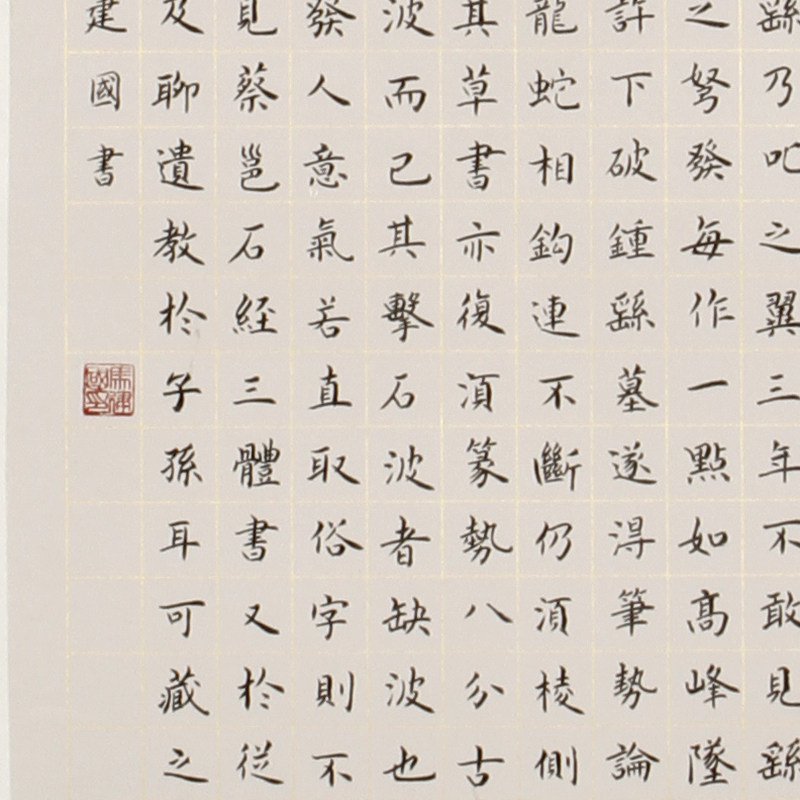 繇乃叱之翼三年不敢見繇
之弩發每作一點如髙峰墜
許下破鍾繇墓遂得筆勢論
龍蛇相鈎連不斷仍須棱側
其草書亦復須篆勢八分古
波而已其擊石波者缺波也
發人意氣若直取俗字則不
見蔡邕石経三體書又於従
及聊遺教於子孫耳可藏之
建國書